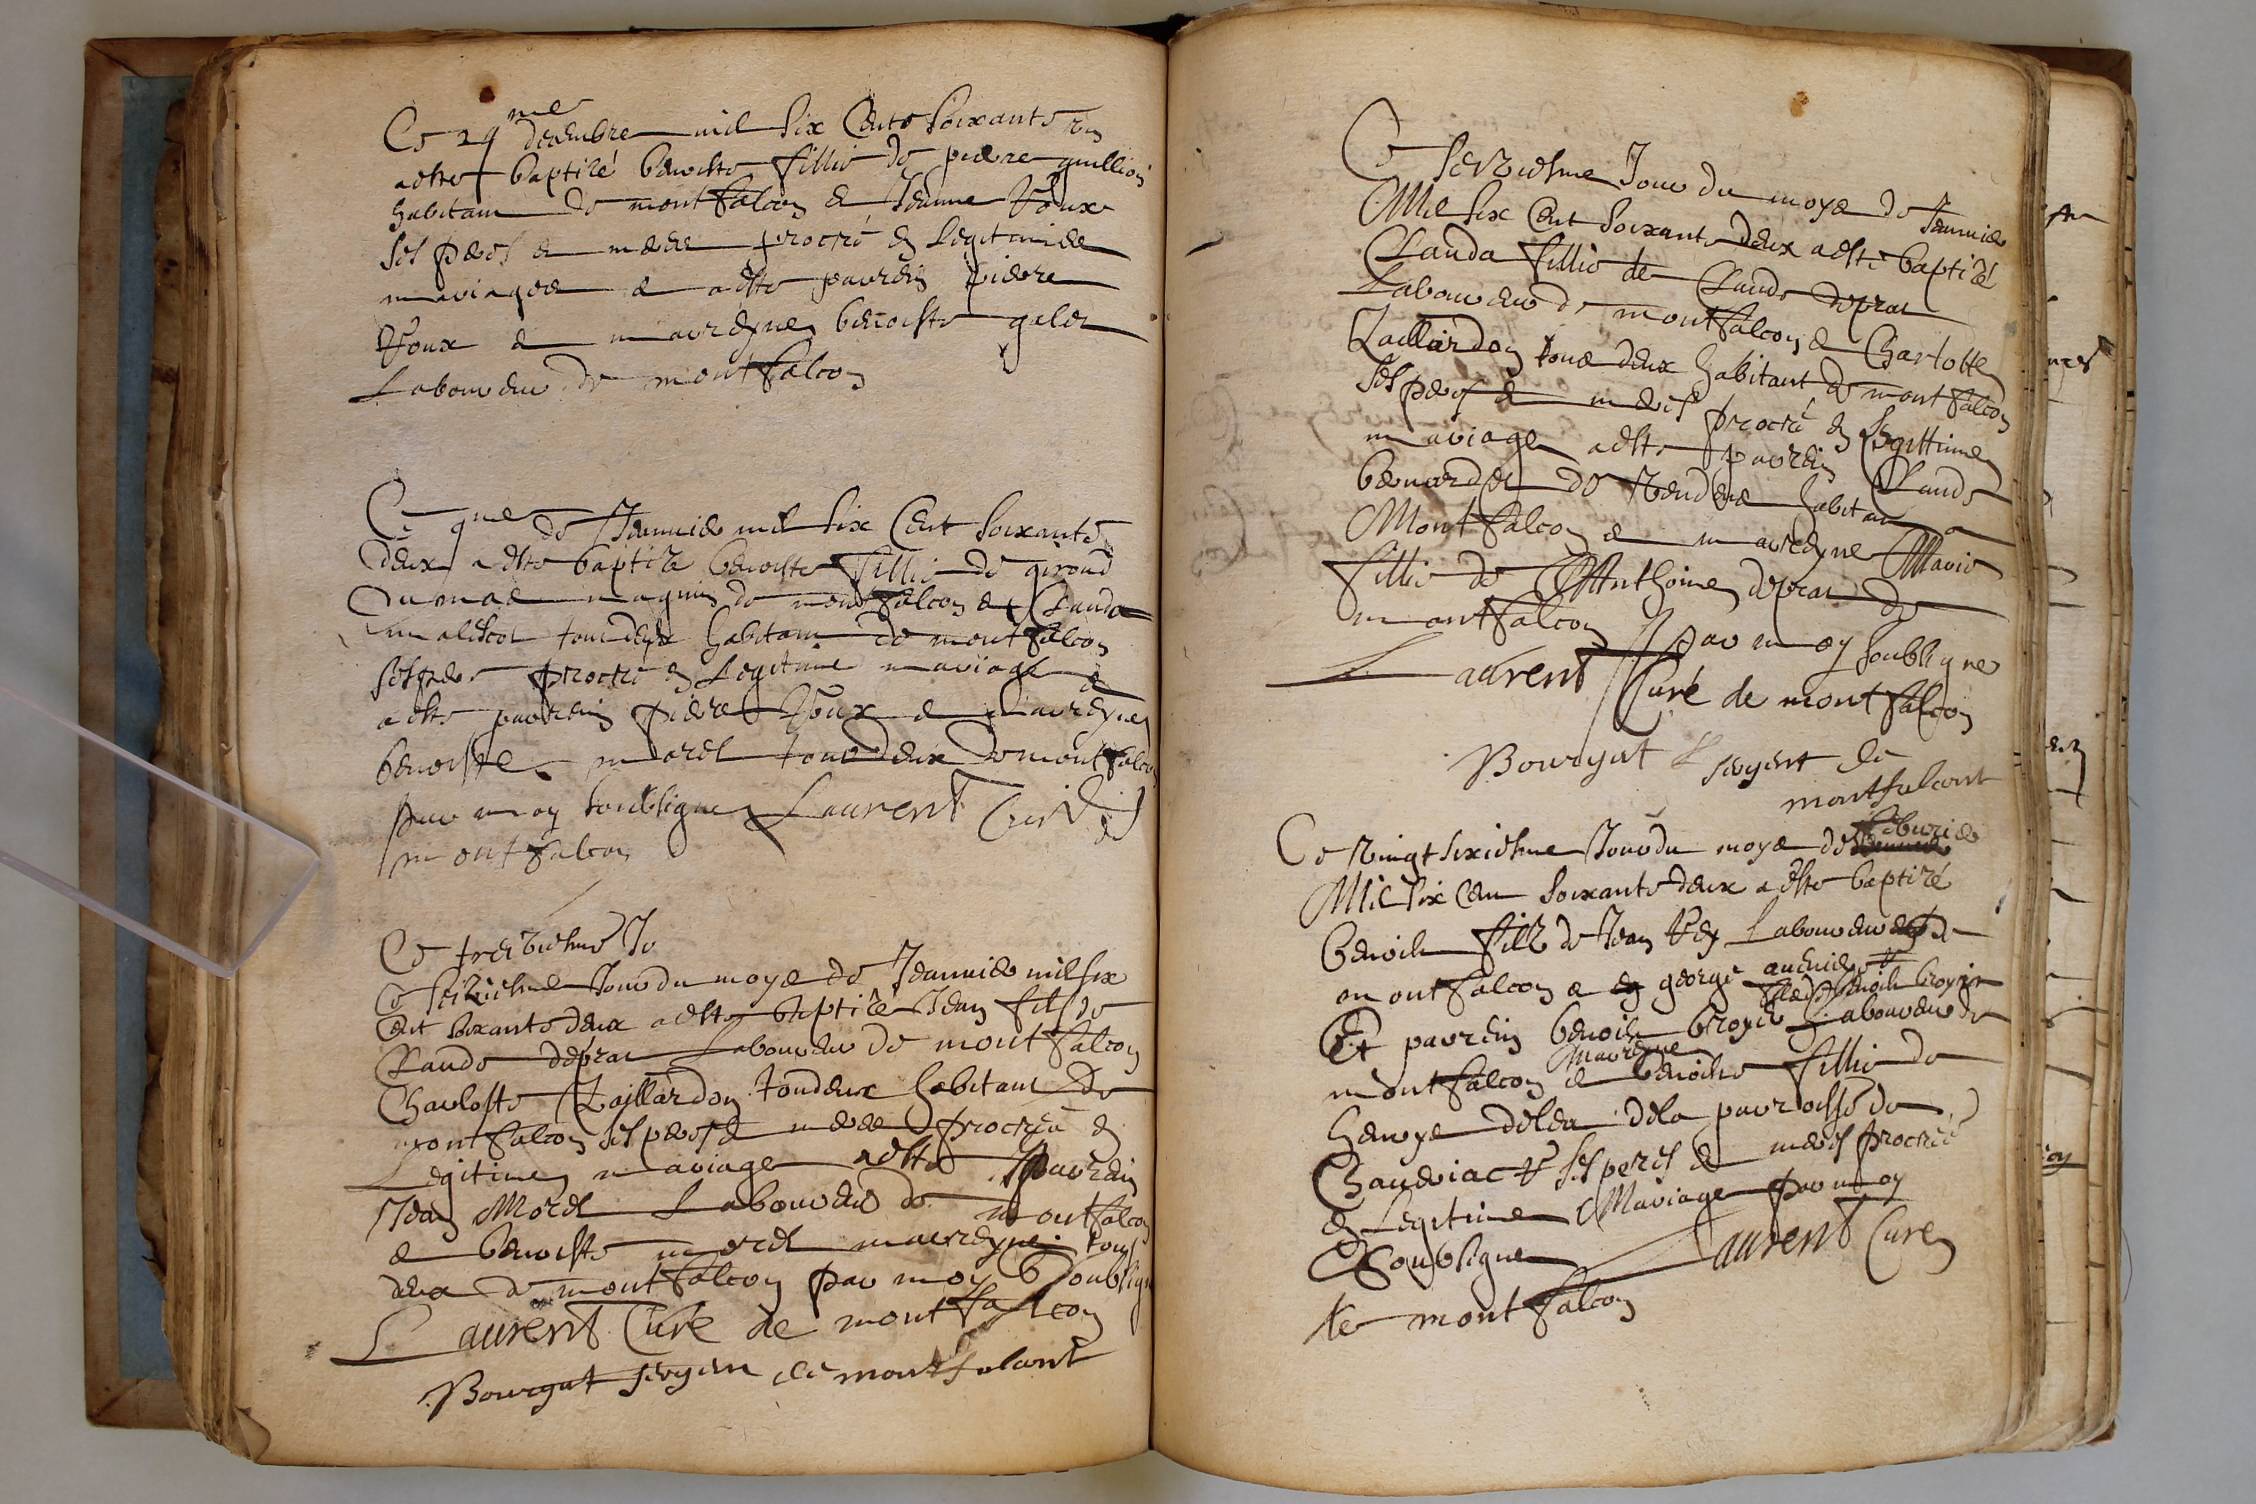 Ce 29me decembre mil six Cents soixante un
a este baptizé benoiste fillie de pierre guillion
habitant de montfalcon et Jeanne Roux
ses peres et mere procreé en Legitimee
mariagee et a este parrein pierre
Roux et marreyne benoiste galet
Laboureur de montfalcon
Ce 9me de Jeanvier mil six Cent soixante
deux a este baptize benoiste fillie de giroud
Dumas de montfalcon et Clauda
tous deux habitant de montfalcon
ses peres procreé en Legitime mariage et
a este parrein pierre Roux et marreyne
benoiste morel tous deux de montfalcon
par moy soubsigne Laurent Curé de
montfalcon
Ce treiziesme Jo
Ce seiziesme Jour du moys de Jeanvier mil six
Cent soixante deux a este baptizé Jean fils de
Claude deprat Laboureur de montfalcon
Charlotte Gaillardon tou deux habitant de
montfalcon ses peres et mere procreé en
Legitime mariage a este parrein
Jean Morel Laboureur de montfalcon
et benoiste morel marreyne tous
deux de montfalcon par moy soubsigne
Laurent Curé de montfalcon
Bourgat sergent de montfalcont
Ce seiziesme Jour du moys de Jeanvier
Mil six Cent soixante deux a este baptizé
Clauda fillie de Claude deprat
Laboureur de montfalcon et Charlotte
Gaillardon tous deux habitant de montfalcon
ses peres et meres procreé en Legittime
mariage a este parrein Claude
habitant a
Montfalcon et marreyne Marie
fillie de Anthoine deprat de
montfalcon par moy soubsigne
Laurent Curé de montfalcon
Bourgat sergent de
montfalcont
Ce vingt sixiesme Jour du moys de feburier
Mil six Cent soixante deux a este baptizé
benoit filz de Jean Rey Laboureur de
montfalcon et george
Et parrein benoit broyer Laboureur de
montfalcon et marreyne benoiste fillie de
de la parroisse de
ses peres et meres procreé
en Legitime Mariage par moy
Soubsigne Laurent Curé
de montfalcon